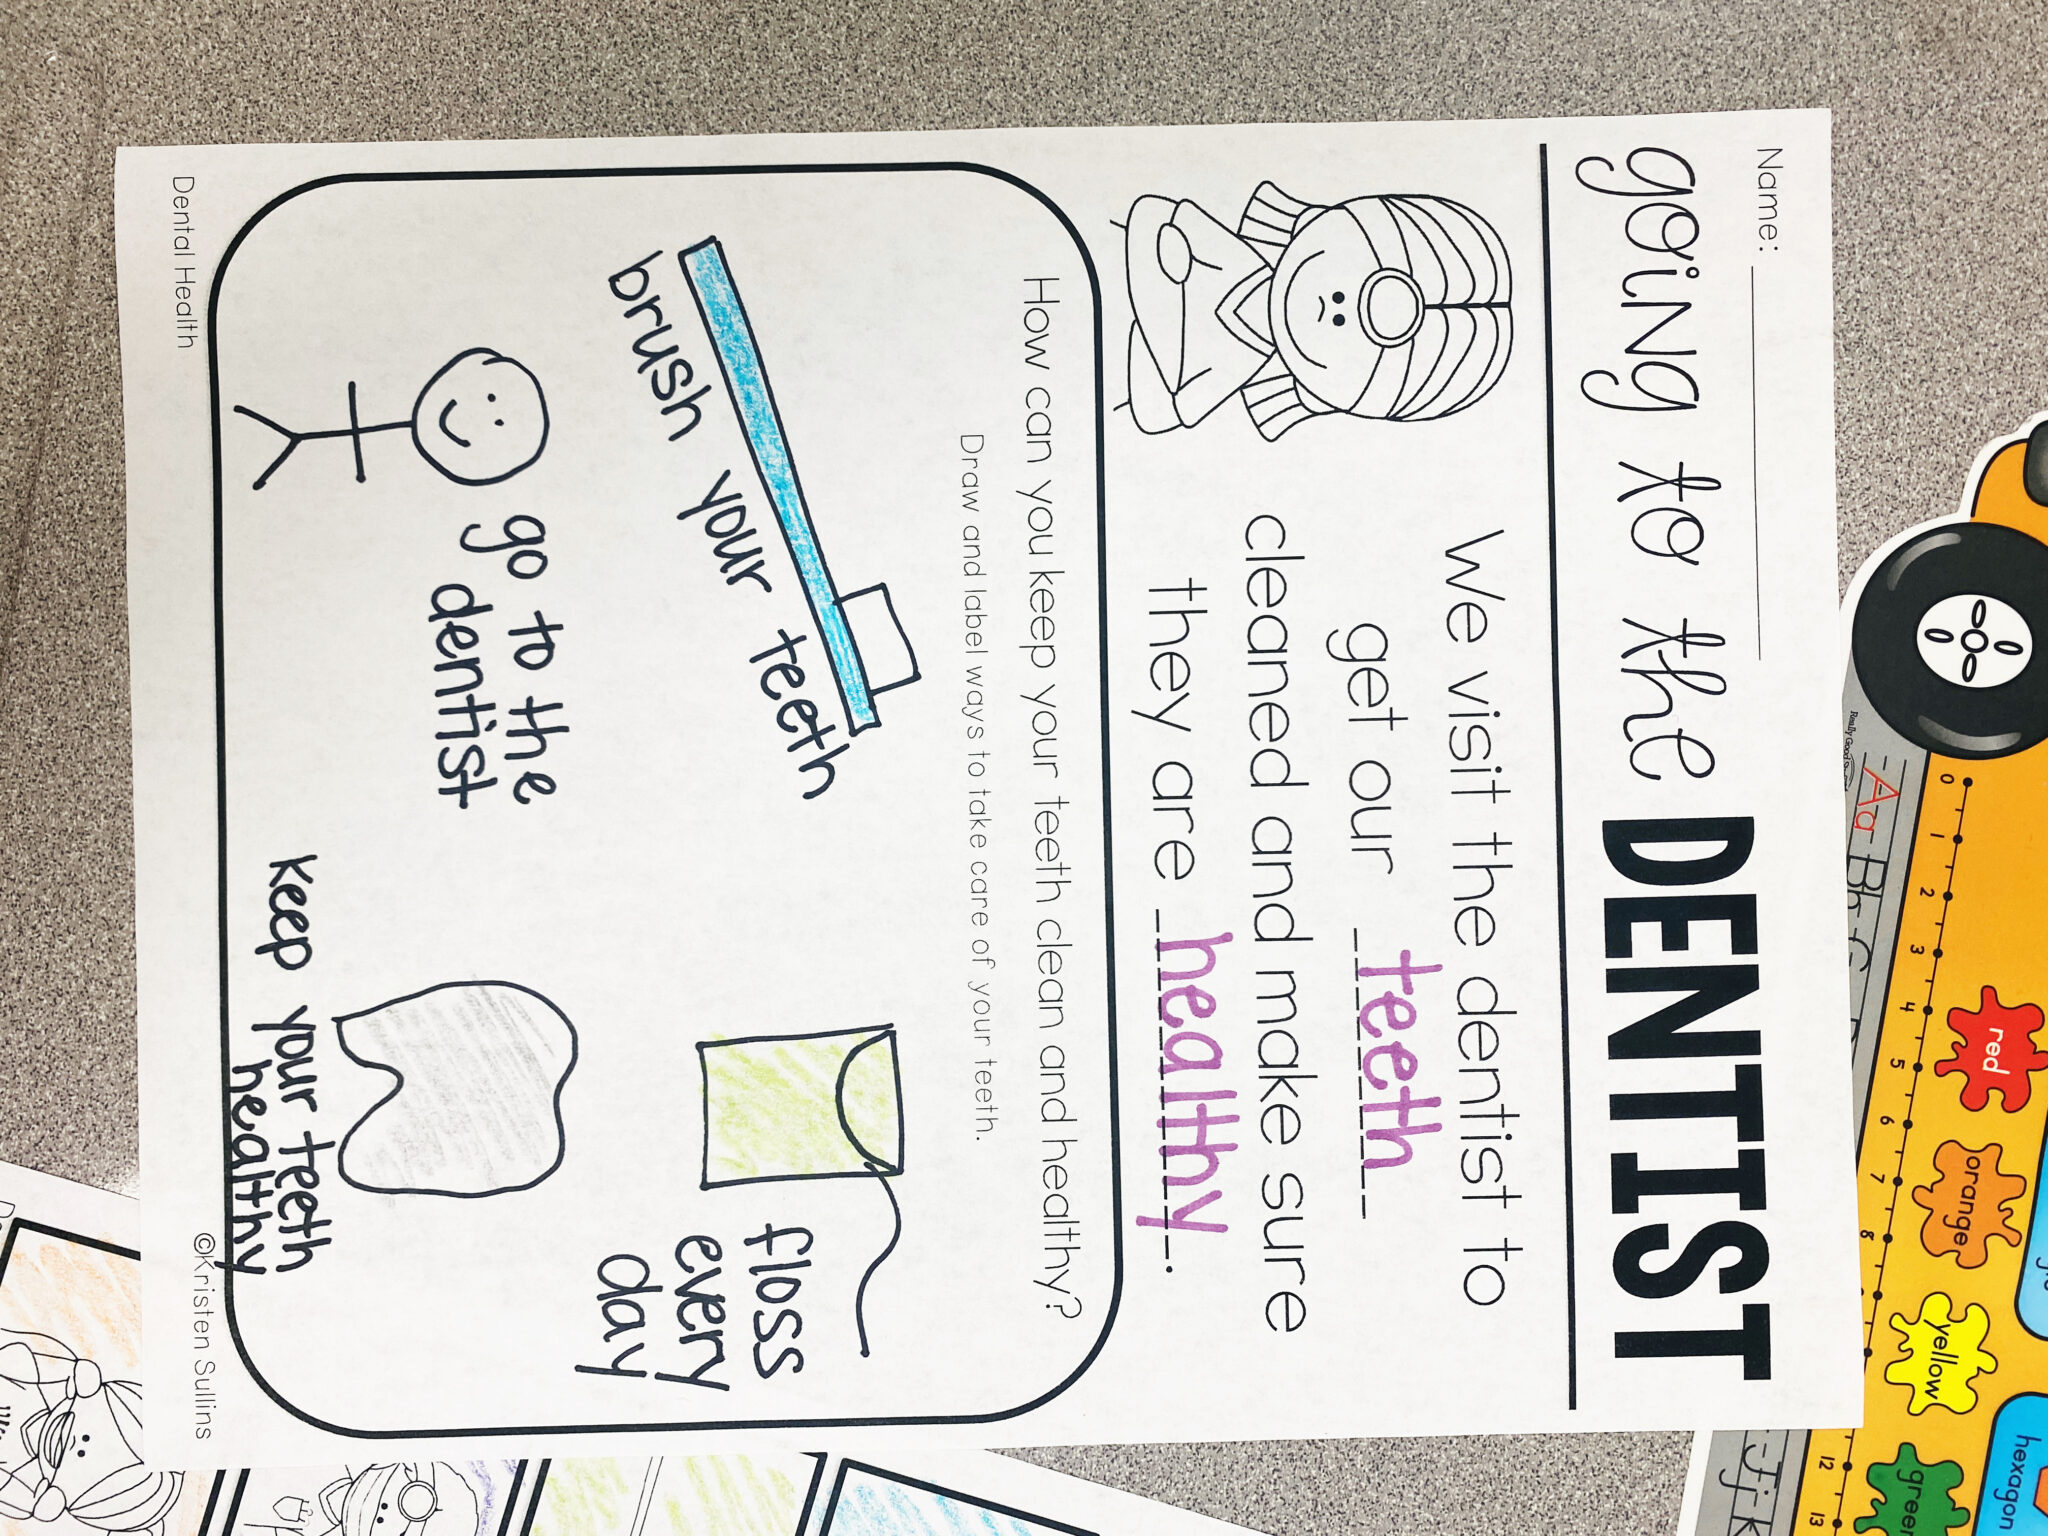 Name:
going to the DENTIST
We visit the dentist to
get our teeth
cleaned and make sure
they are healthy.
How can you keep your teeth clean and healthy?
Draw and label ways to take care of your teeth.
brush your teeth
floss
every
day
go to the
dentist
keep your teeth
healthy
Dental Health
©Kristen Sullins
Aa Bb Cc
0 1 2 3 4 5 6 7 8 12 13
red
orange
yellow
green
hexagon
Jj